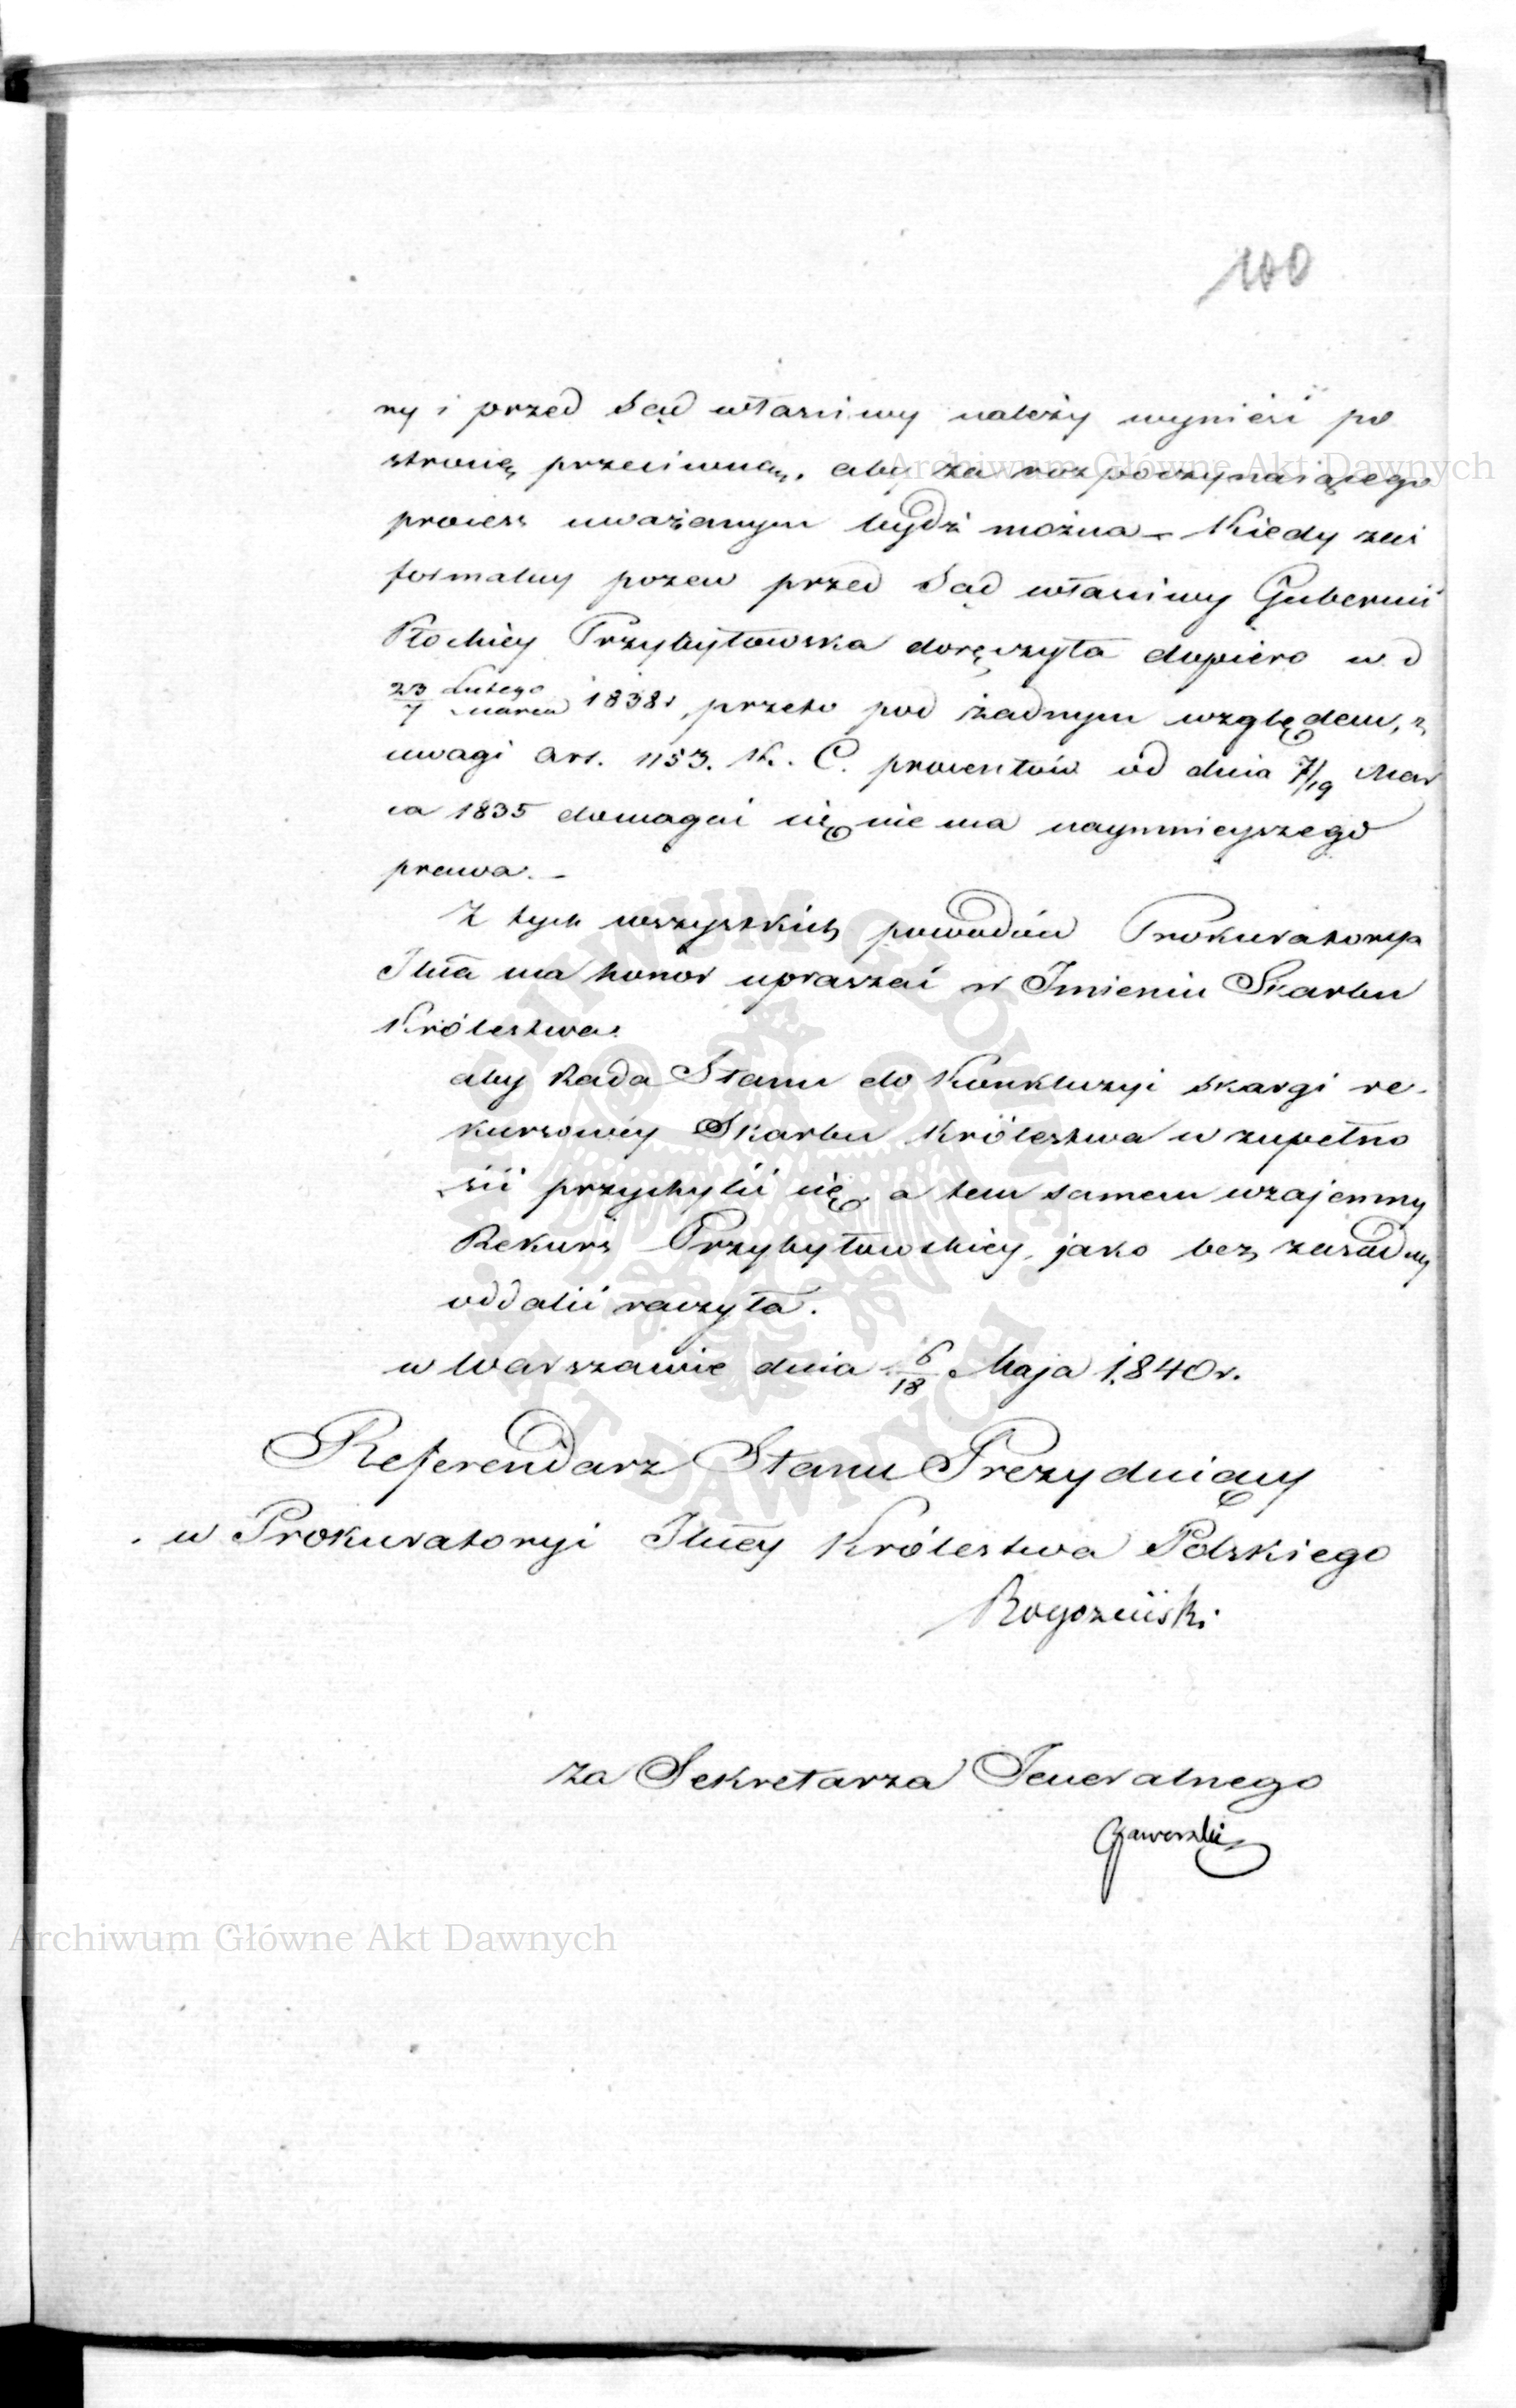 100
ny i przed Sąd własciwy należy wynieść po
stronię przeciwną, aby za rozpoczynaiącego
process uważanym bydź można – Kiedy zaś
formalny pozew przed Sąd własciwy Gubernii
Płockiey Przybyłowska doręczyła dopiero w d
23/7 Lutego/Marca 1838 r, przeto pod żadnym względem, z
uwagi Art. 1153. K. C. procentów od dnia 7/19 Mar
ca 1835 domagać się nie ma naymnieyszego
prawa. –
Z tych wszystkich powodów Prokuratorya
Jlna ma honor upraszać w Imieniu Skarbu
Królestwa.
aby Rada Stanu do Konkluzyi skargi re-
kursowéy Skarbu Królestwa w zupełno
ści przychylić się a tem samem wzajemny
Rekurs Przybyłowskiey, jako bez zasadny
oddalić raczyła.
w Warszawie dnia 6/18 Maja 1840 r.
Referendarz Stanu Prezyduiący
w Prokuratoryi Jlnéy Królestwa Polskiego
Rogoziński
Za Sekretarza Jeneralnego
Jaworski
Archiwum Główne Akt Dawnych
Archiwum Główne Akt Dawnych
ARCHIWUM GŁÓWNE AKT DAWNYCH